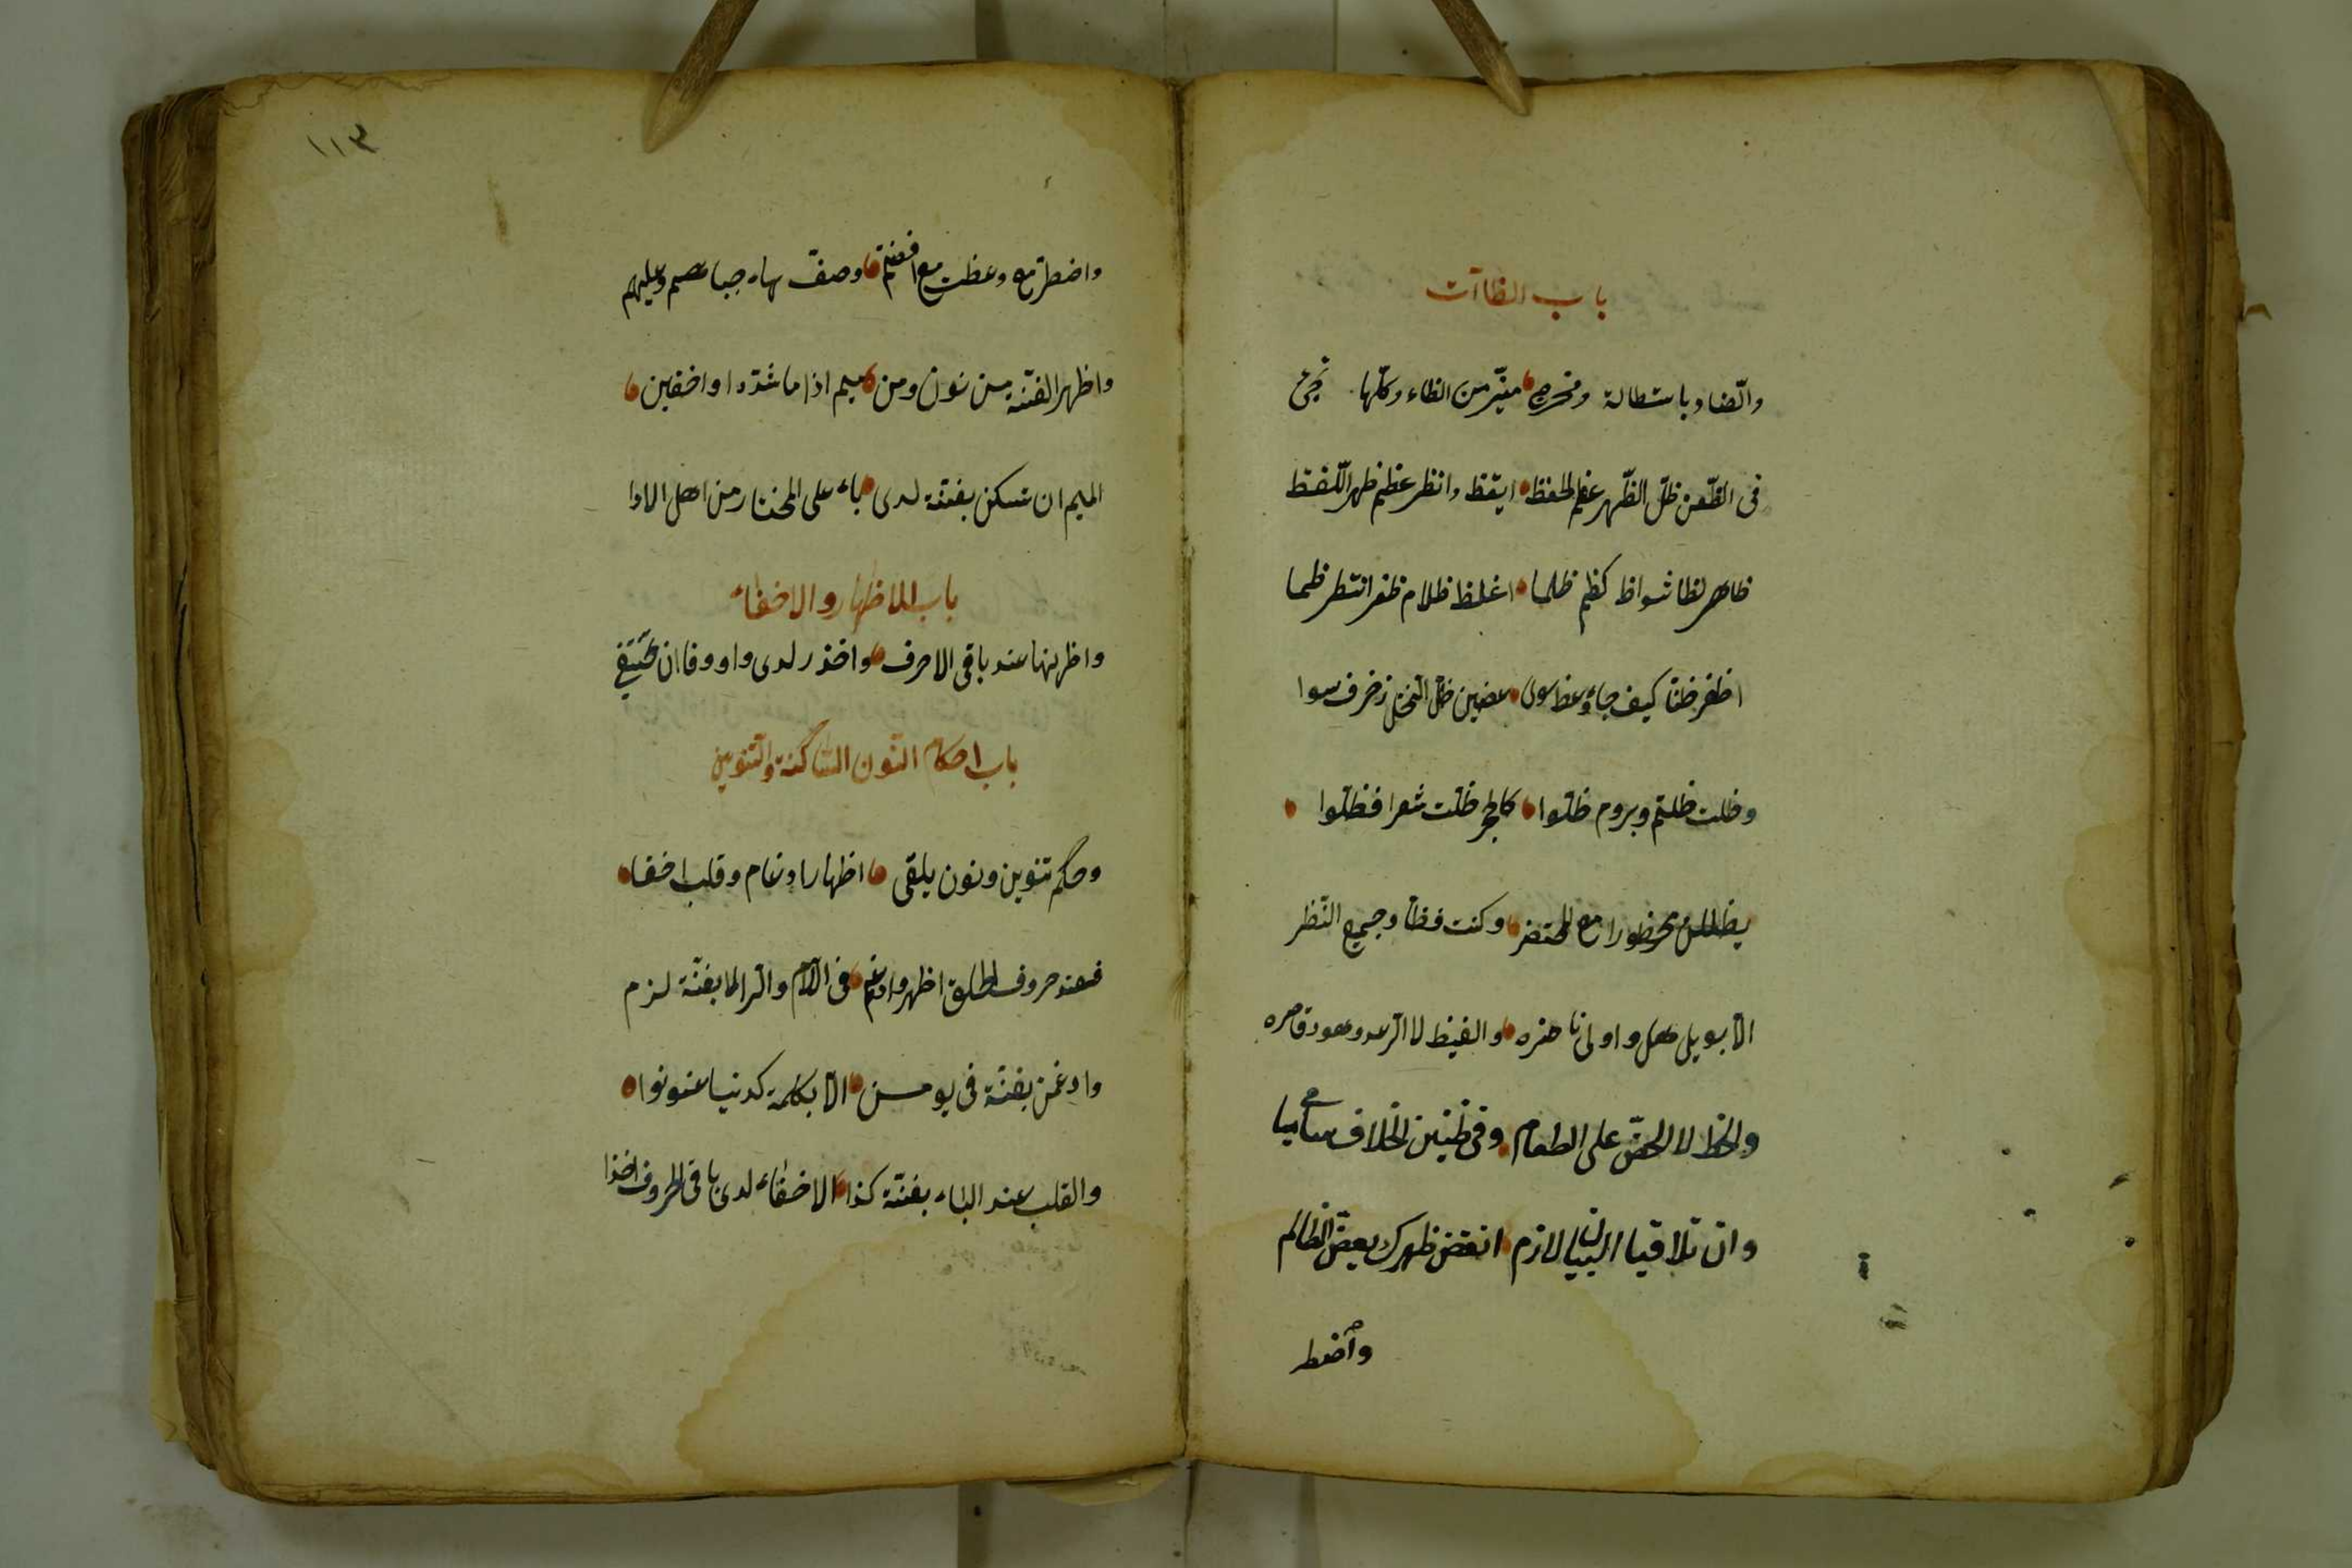 باب الظاآت
والضاد باستطالة ومخرج ميز من الظاء وكلها تجى
فى الظعن ظل الظهر عظم الحفظ ايقظ وانظر عظم ظهر اللفظ
ظاهر لظا شواظ كظم ظلما اغلظ ظلام ظفر انتظر ظما
اظفر ظنا كيف جاء وعظ سوى عضين ظل النحل زخرف سوا
وظلت ظلتم وبروم ظلوا كالحجر ظلت شعرا فظلوا
يظللن محظورا مع المحتضر وكنت فظا وجميع النظر
الا بويل هل واولى ناضره والغيظ لا الرعد وهود قاصره
والحظ لا الحض على الطعام وفى ظنين الخلاف سامى
وان تلاقيا البيان لازم انقض ظهرك يعض الظالم
واضط
١١٣
واضطر مع وعظت مع افضتم وصف ها جباههم وعليهم
واظهر الغنة من نون ومن ميم اذا ما شددا واخفين
الميم ان تسكن بغنة لدى باء على المختار من اهل الادا
باب الاظهار والاخفاء
واظهرنها عند باقى الاحرف واحذر لدى واو وفا ان تختفى
باب احكام النون الساكنة والتنوين
وحكم تنوين ونون يلقى اظهار ادغام وقلب اخفا
فعند حروف الحلق اظهر وادغم فى اللام والرا لا بغنة لزم
وادغمن بغنة فى يومن الا بكلمة كدنيا عنونوا
والقلب عند الباء بغنة كذا الاخفاء لدى باقى الحروف اخذا